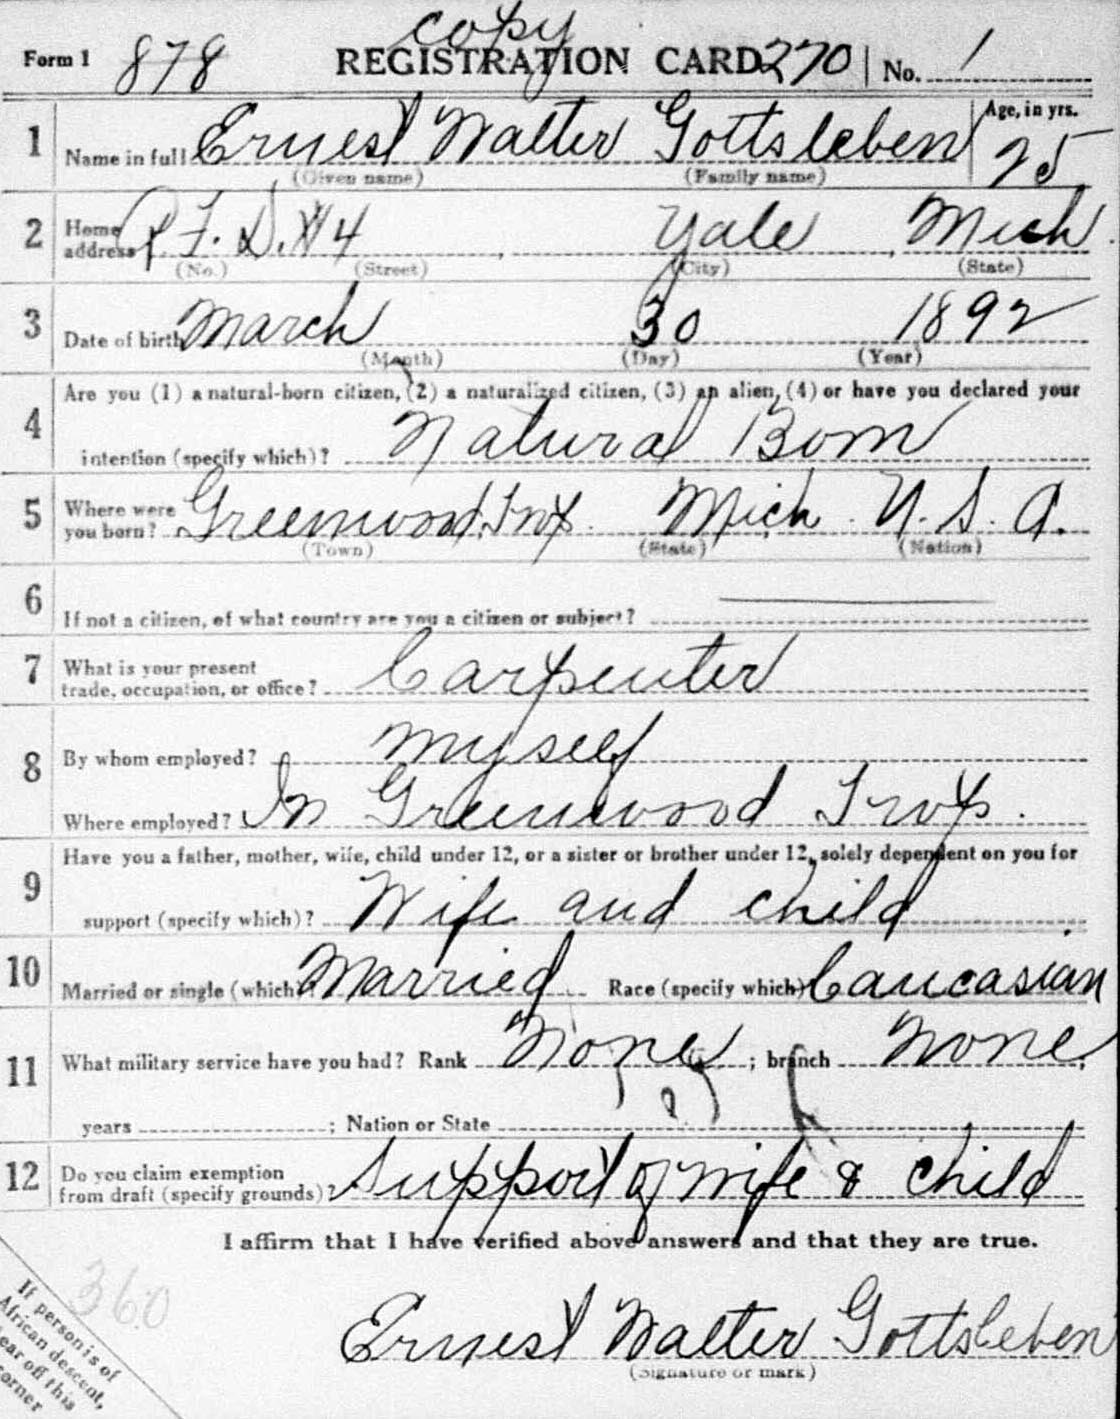 copy
Form 1 878 REGISTRATION CARD 270 No. 1
1 Name in full Ernest Walter Gottsleben Age, in yrs. 25
(Given name) (Family name)
2 Home address R.F.D. #4 Yale, Mich.
(No.) (Street) (City) (State)
3 Date of birth March 30 1892
(Month) (Day) (Year)
4 Are you (1) a natural-born citizen, (2) a naturalized citizen, (3) an alien, (4) or have you declared your
intention (specify which)? Natural Born
5 Where were you born? Greenwood, Twp. Mich. U. S. A.
(Town) (State) (Nation)
6 If not a citizen, of what country are you a citizen or subject?
7 What is your present trade, occupation, or office? Carpenter
8 By whom employed? myself
Where employed? In Greenwood Twp.
9 Have you a father, mother, wife, child under 12, or a sister or brother under 12, solely dependent on you for
support (specify which)? Wife and child.
10 Married or single (which)? Married Race (specify which) Caucasian
11 What military service have you had? Rank None ; branch None,
years ; Nation or State
12 Do you claim exemption from draft (specify grounds)? Support of wife & child
I affirm that I have verified above answers and that they are true.
360
Ernest Walter Gottsleben
(Signature or mark)
If person is of
African descent,
tear off this
corner